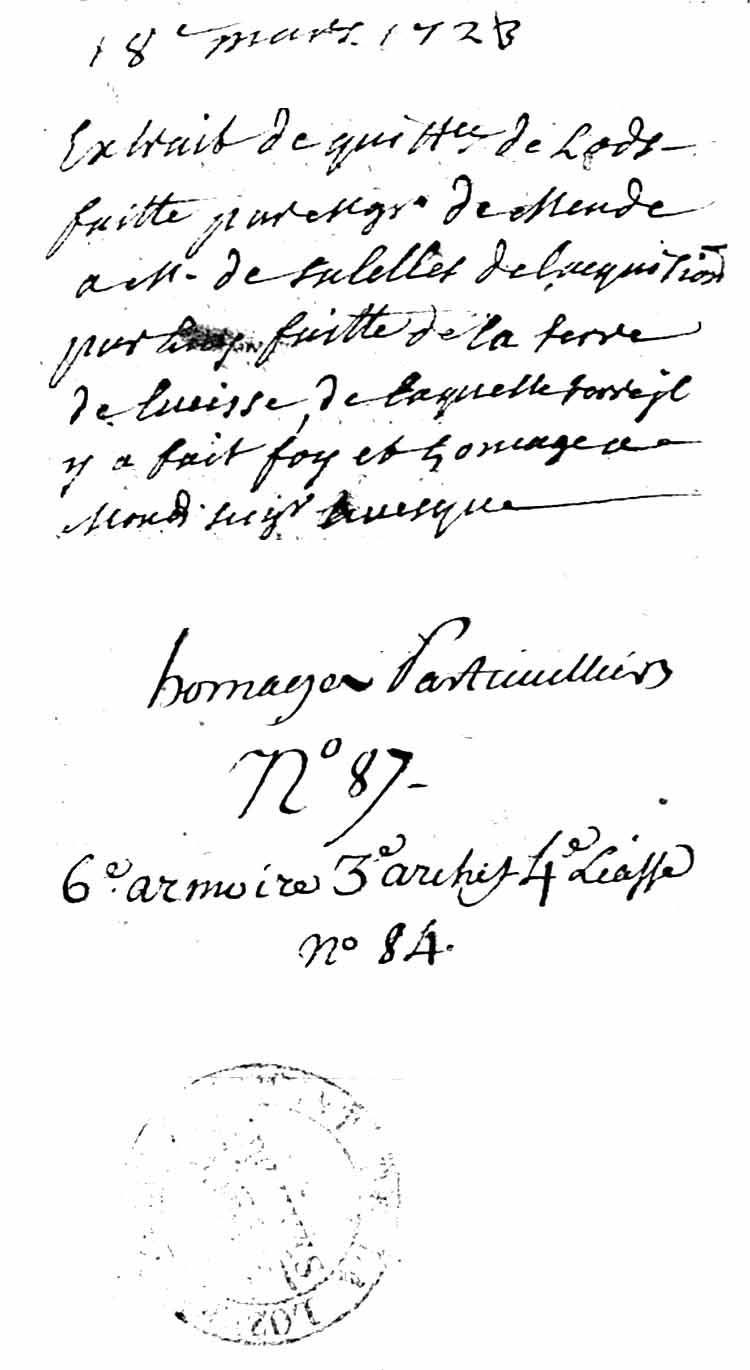 18e mars 1723
Extrait de quitt.ce de Lods
faitte par Mgr. de Mende
a Mr. de Salelles de lacquisition
par luy faitte de la terre
de Cueisse, de laquelle terre jl
y a fait foy et homage a
Mond seigr evesque
homages Particulliers
No 87
6e armoire 3e archet 4e Liasse
no 84.
LOZ